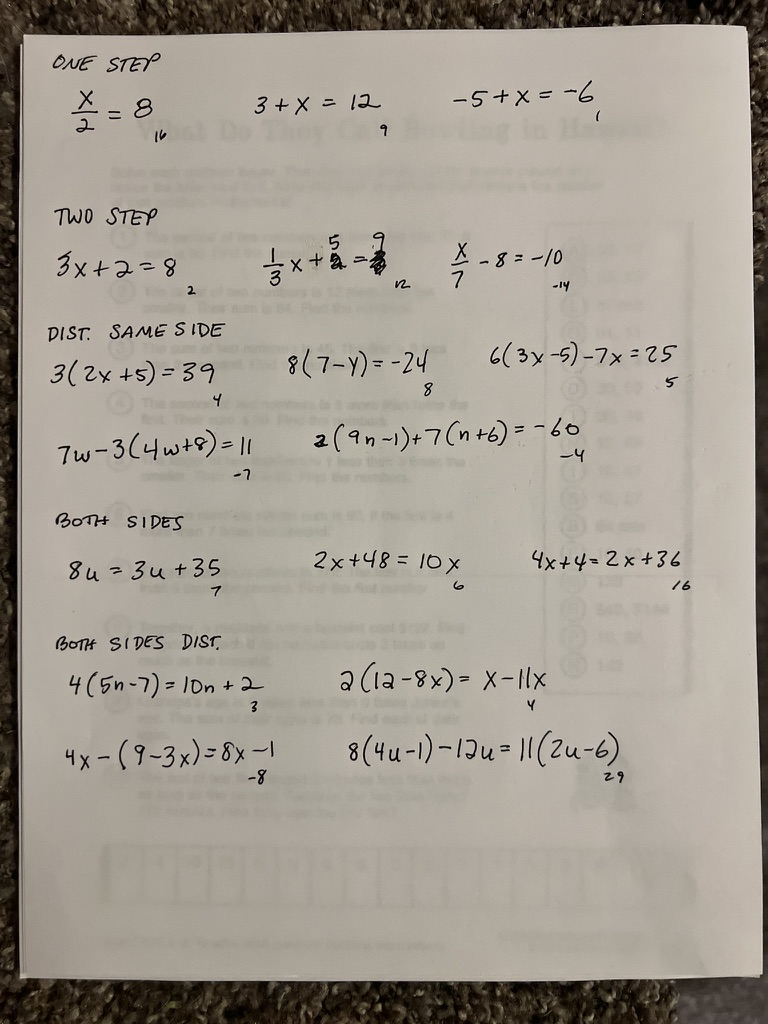 ONE STEP
x/2 = 8 16 3 + x = 12 9 -5 + x = -6 1
TWO STEP
3x + 2 = 8 2 1/3 x + 5 = 9 12 x/7 - 8 = -10 -14
DIST. SAME SIDE
3(2x + 5) = 39 4 8(7 - y) = -24 8 6(3x - 5) - 7x = 25 5
7w - 3(4w + 8) = 11 -7 2(9n - 1) + 7(n + 6) = -60 -4
BOTH SIDES
8u = 3u + 35 7 2x + 48 = 10x 6 4x + 4 = 2x + 36 16
BOTH SIDES DIST.
4(5n - 7) = 10n + 2 3 2(12 - 8x) = x - 11x 4
4x - (9 - 3x) = 8x - 1 -8 8(4u - 1) - 12u = 11(2u - 6) 29